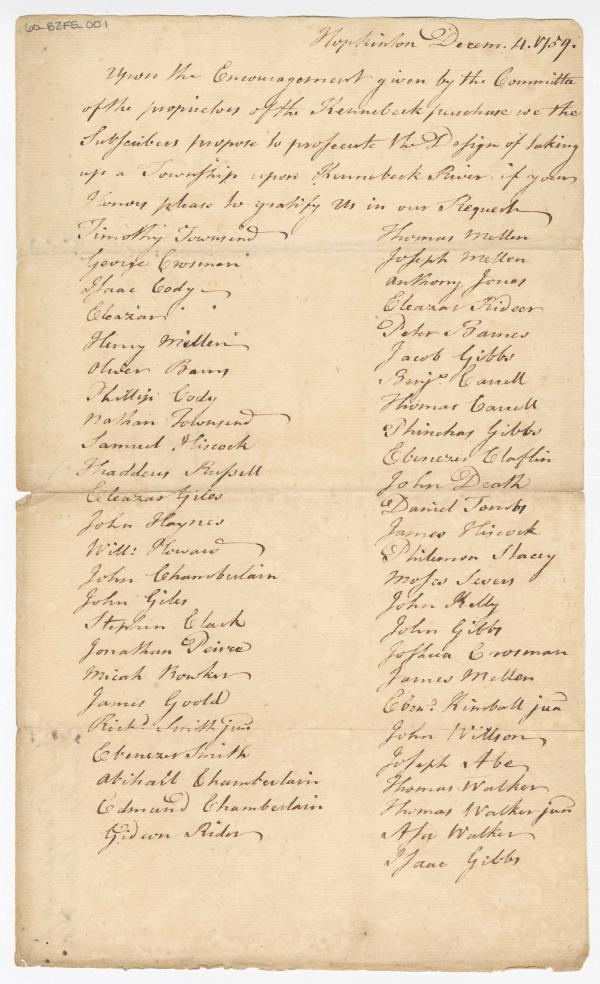 60_BZFS_001
Hopkinton Decem. 4. 1759.
Upon the Encouragement given by the Committe
of the propriectors of the Kennebeck purchase we the
Subscribers propose to prosecute the Design of taking
up a Township upon Kennebeck River if your
Honors please to gratify Us in our Request
Timothy Townsend
George Crosman
Isaac Cody
Eleazar " "
Henry Mellen
Oliver Barns
Phillip Cody
Nathan Townsend
Samuel Hiscock
Thaddeus Russell
Eleazar Giles
John Haynes
Will: Howard
John Chamberlain
John Giles
Stephen Clark
Jonathan Peirce
Micah Bowker
James Goold
Richd. Smith jun
Ebenezer Smith
Abihall Chamberlain
Edmund Chamberlain
Gideon Rider
Thomas Mellen
Joseph Mellen
Anthony Jonas
Eleazar Rideer
Peter Barnes
Jacob Gibbs
Benja. Carrell
Thomas Carrell
Phinehas Gibbs
Ebenezer Claflin
John Death
Daniel Tombs
James Hiscock
Philemon Stacey
Moses Severs
John Kelly
John Gibbs
Joshua Crosman
James Mellen
Ebenr. Kimball jun
John Willson
Joseph Abe
Thomas Walker
Thomas Walker jun
Asa Walker
Isaac Gibbs